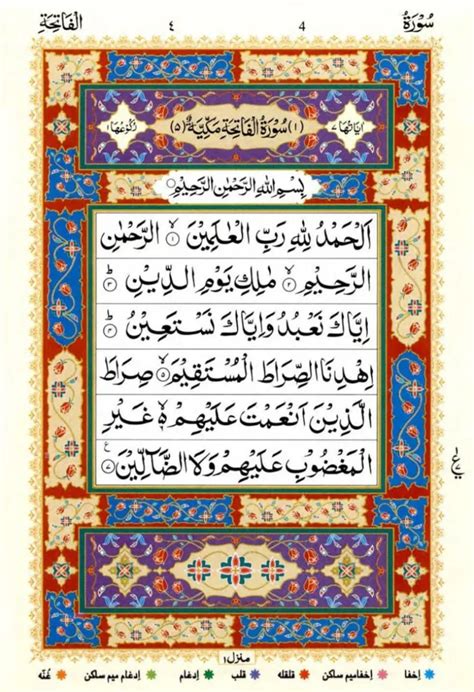 سُوْرَةُ 4 ٤ الْفَاتِحَةِ
اٰيَاتُهَا ٧ (١) سُوْرَةُ الْفَاتِحَةِ مَكِّيَّةٌ (٥) رُكُوْعُهَا ١
بِسْمِ اللهِ الرَّحْمٰنِ الرَّحِيْمِ
اَلْحَمْدُ لِلّٰهِ رَبِّ الْعٰلَمِيْنَ ۙ﴿١﴾ الرَّحْمٰنِ
الرَّحِيْمِ ۙ﴿٢﴾ مٰلِكِ يَوْمِ الدِّيْنِ ؕ﴿٣﴾
اِيَّاكَ نَعْبُدُ وَاِيَّاكَ نَسْتَعِيْنُ ؕ﴿٤﴾
اِهْدِنَا الصِّرَاطَ الْمُسْتَقِيْمَ ۙ﴿٥﴾ صِرَاطَ
الَّذِيْنَ اَنْعَمْتَ عَلَيْهِمْ ۙ۬ غَيْرِ
الْمَغْضُوْبِ عَلَيْهِمْ وَلَا الضَّآلِّيْنَ ﴿٧﴾
منزل ١
اخفا اخفامیم ساکن قلقله قلب ادغام ادغام میم ساکن غُنّه